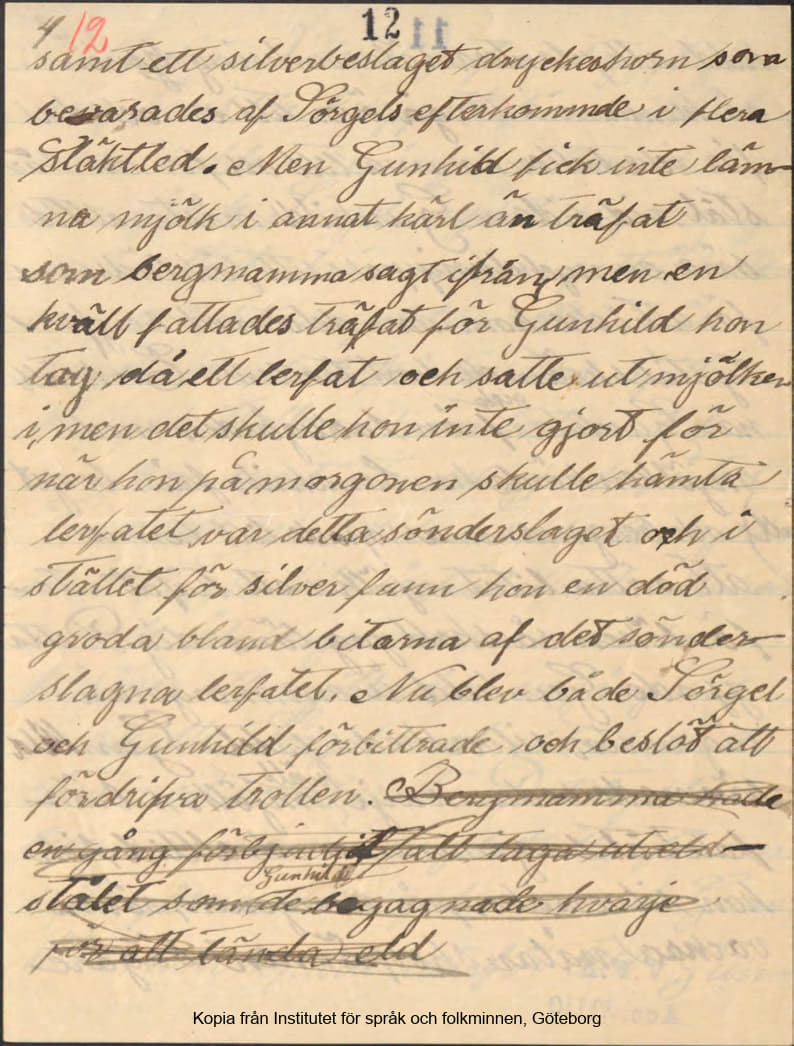 4 12 12
samt ett silverbeslaget dryckeshorn som
bevarades af Sörgels efterkommde i flera
Släktled. Men Gunhild fick inte läm-
na mjölk i annat kärl än träfat
som bergmamma sagt ifrån, men en
kväll fattades träfat för Gunhild hon
tog då ett lerfat och satte ut mjölken
i, men det skulle hon inte gjort för
när hon på morgonen skulle hämta
lerfatet var detta sönderslaget och i
stället för silver fann hon en död
groda bland bitarna af det sönder-
slagna lerfatet. Nu blev både Sörgel
och Gunhild förbittrade och beslöt att
fördrifva trollen. Bergmamma hade
en gång förbjudit att taga ut eld-
Gunhild
stålet som de begagnade hvarje
för att tända eld
Kopia från Institutet för språk och folkminnen, Göteborg